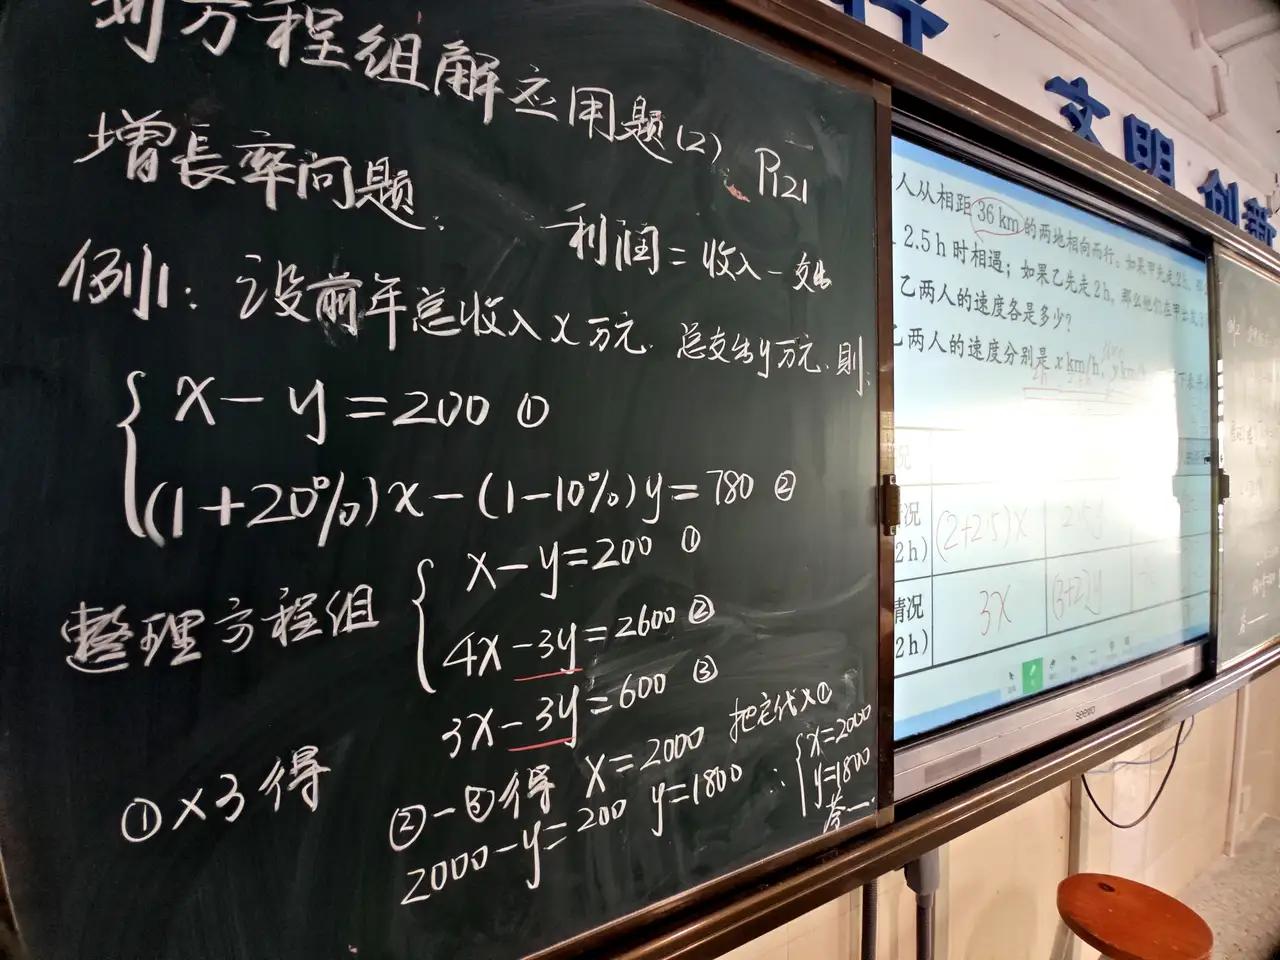 列方程组解应用题(2) P121
增長率问题:
利润=收入-支出
例1: 设前年总收入x万元.总支出y万元.則:
x-y=200 ①
(1+20%)x-(1-10%)y=780 ②
整理方程组
x-y=200 ①
4x-3y=2600 ②
3x-3y=600 ③
①×3得
②-③得 x=2000 把它代入①
2000-y=200 y=1800 ∴
x=2000
y=1800
答一.
文明 创新
人从相距36 km的两地相向而行。如果甲先走2h,
2.5 h时相遇;如果乙先走2 h,那么他们在甲出发
乙两人的速度各是多少?
乙两人的速度分别是x km/h,y km/h
况
(2+2.5)x 2.5y
2h)
情况
3x (3+2)y
2h)
seewo
答一